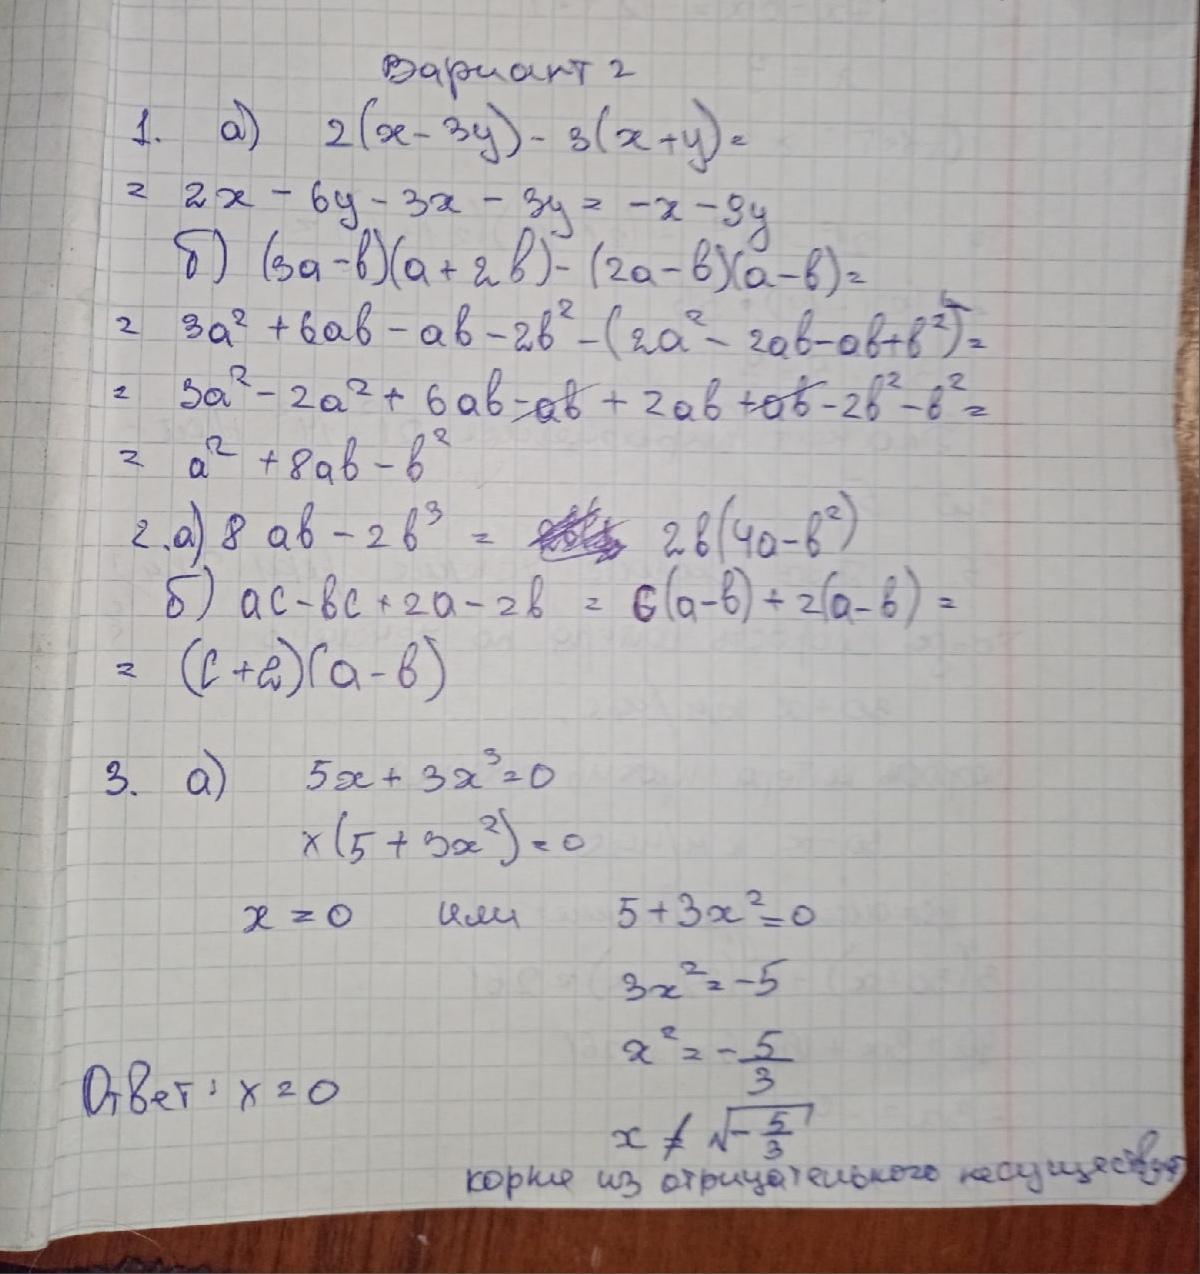 Вариант 2
1. а) 2(x-3y)-3(x+y)=
= 2x-6y-3x-3y=-x-9y
б) (3a-b)(a+2b)-(2a-b)(a-b)=
= 3a²+6ab-ab-2b²-(2a²-2ab-ab+b²)=
= 3a²-2a²+6ab-ab+2ab+ab-2b²-b²=
= a²+8ab-b²
2.а) 8ab-2b³ = 2b(4a-b²)
б) ac-bc+2a-2b = c(a-b)+2(a-b)=
= (c+2)(a-b)
3. а) 5x+3x³=0
x(5+3x²)=0
x=0 или 5+3x²=0
3x²=-5
x²=-5/3
Ответ: x=0
x≠√-5/3
корня из отрицательного не существует